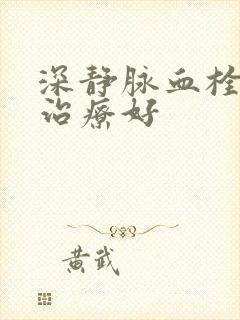 深静脉血栓
治疗好
黄武